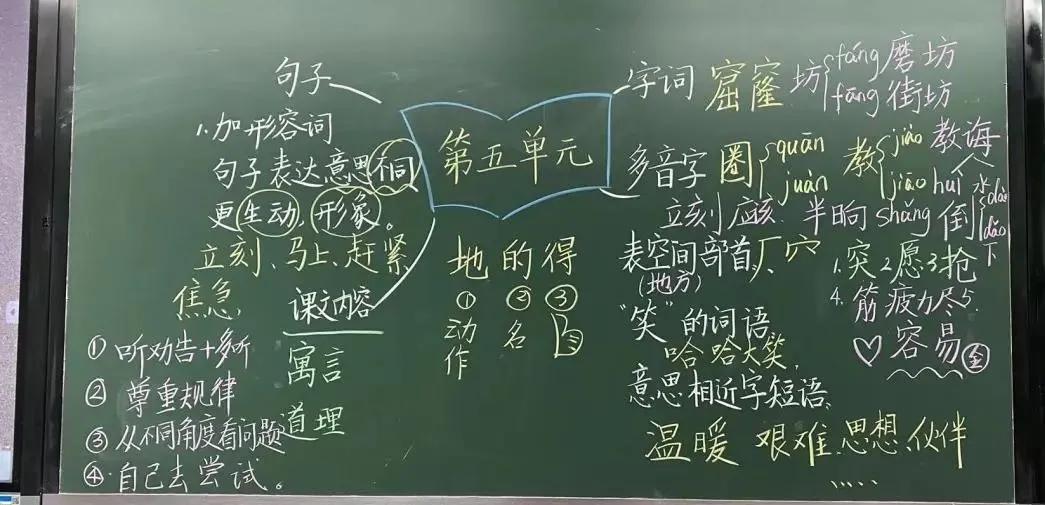 第五单元
句子
1.加形容词
句子表达意思不同
更生动,形象。
立刻、马上、赶紧
焦急,
课文内容
寓言
道理
① 听劝告+多听
② 尊重规律
③ 从不同角度看问题
④ 自己去尝试。
地 的 得
① ② ③
动作
名
字词 窟窿 坊
fáng 磨坊
fāng 街坊
多音字 圈
quān
juàn
教
jiào 教诲
jiāo huì
立刻 应该. 半晌 shǎng 倒
dào 水
dǎo 下
表空间部首,厂穴
(地方)
1.突 2愿 3.抢
4.筋疲力尽 5.
♡容易
"笑"的词语
哈哈大笑,
意思相近字短语
温暖 艰难.思想.伙伴
.....